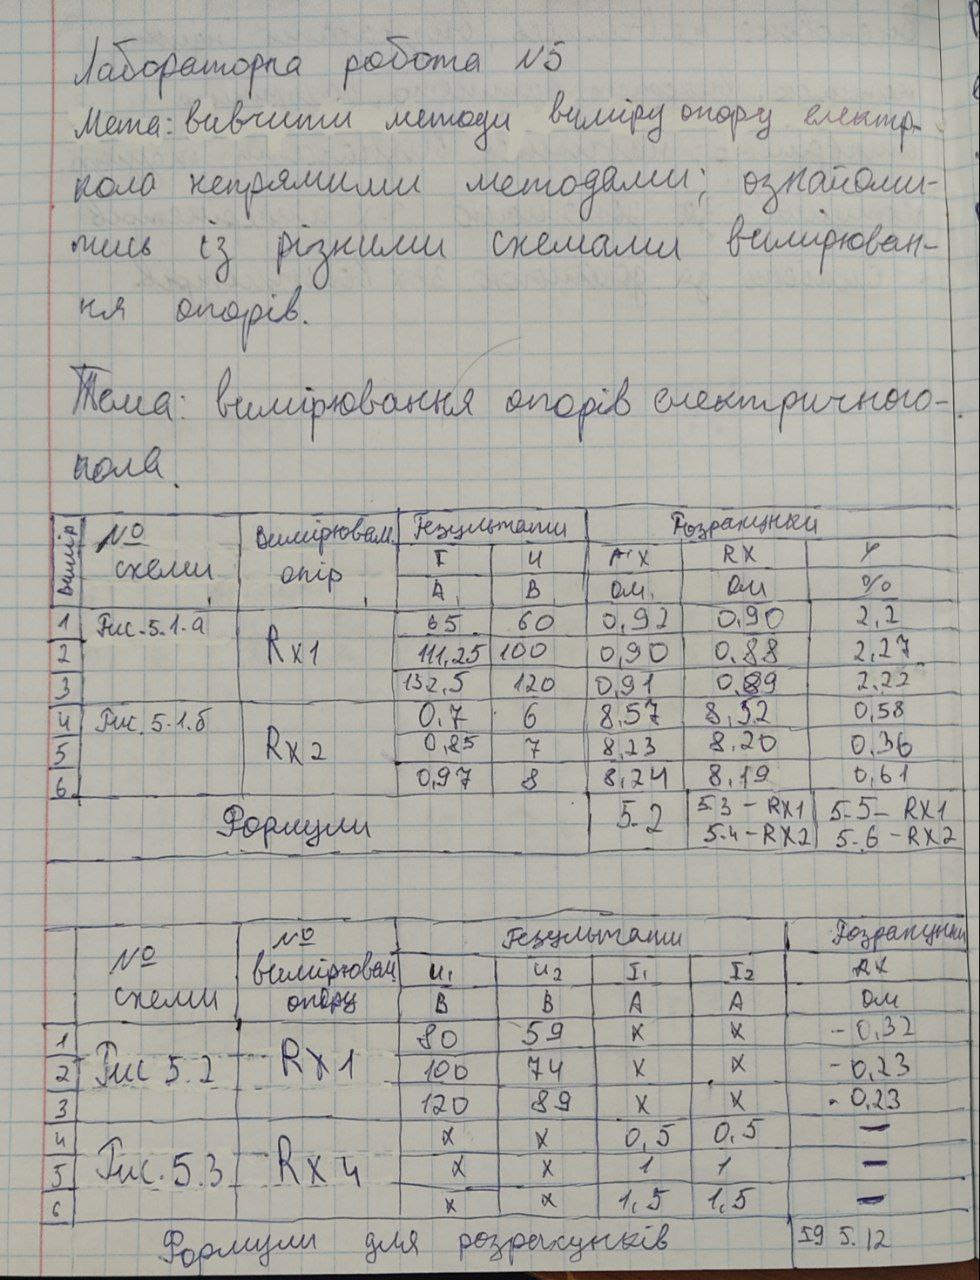 Лабораторна робота №5
Мета: вивчити методи виміру опору електр-
кола непрямими методами; ознайоми-
тись із різними схемами вимірюван-
ня опорів.
Тема: вимірювання опорів електричного-
кола.
Вимір № схеми Вимірюван. опір Результати Розрахунки
I U R'X RX γ
А В Ом Ом %
1 Рис.5.1.а RX1 65 60 0,92 0,90 2,2
2 111,25 100 0,90 0,88 2,27
3 132,5 120 0,91 0,89 2,22
4 Рис. 5.1.б RX2 0,7 6 8,57 8,52 0,58
5 0,85 7 8,23 8,20 0,36
6 0,97 8 8,24 8,19 0,61
Формули 5.2 5.3 – RX1 5.5 – RX1
5.4 – RX2 5.6 – RX2
№ схеми № вимірюван. опору Результати Розрахунки
U1 U2 I1 I2 RX
В В А А Ом
1 Рис 5.2 RX1 80 59 х х - 0,32
2 100 74 х х - 0,23
3 120 89 х х - 0,23
4 Рис.5.3 RX4 х х 0,5 0,5 –
5 х х 1 1 –
6 х х 1,5 1,5 –
Формули для розрахунків 5.12